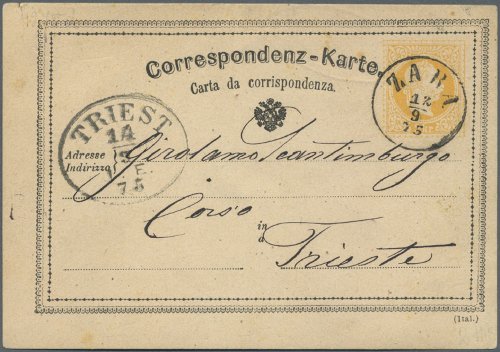 Correspondenz-Karte.
Carta da corrispondenza.
ZARA
12
9
75
TRIEST
14
9
75
Adresse
Indirizzo
Girolamo Scantimburgo
Corso
in
a
Trieste
(Ital.)